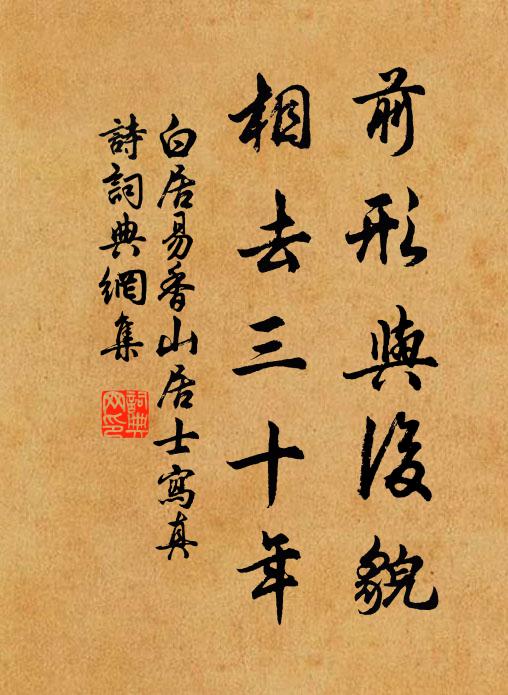 前形與後貌
相去三十年
白居易香山居士寫真
詩詞典網集
詞典網印